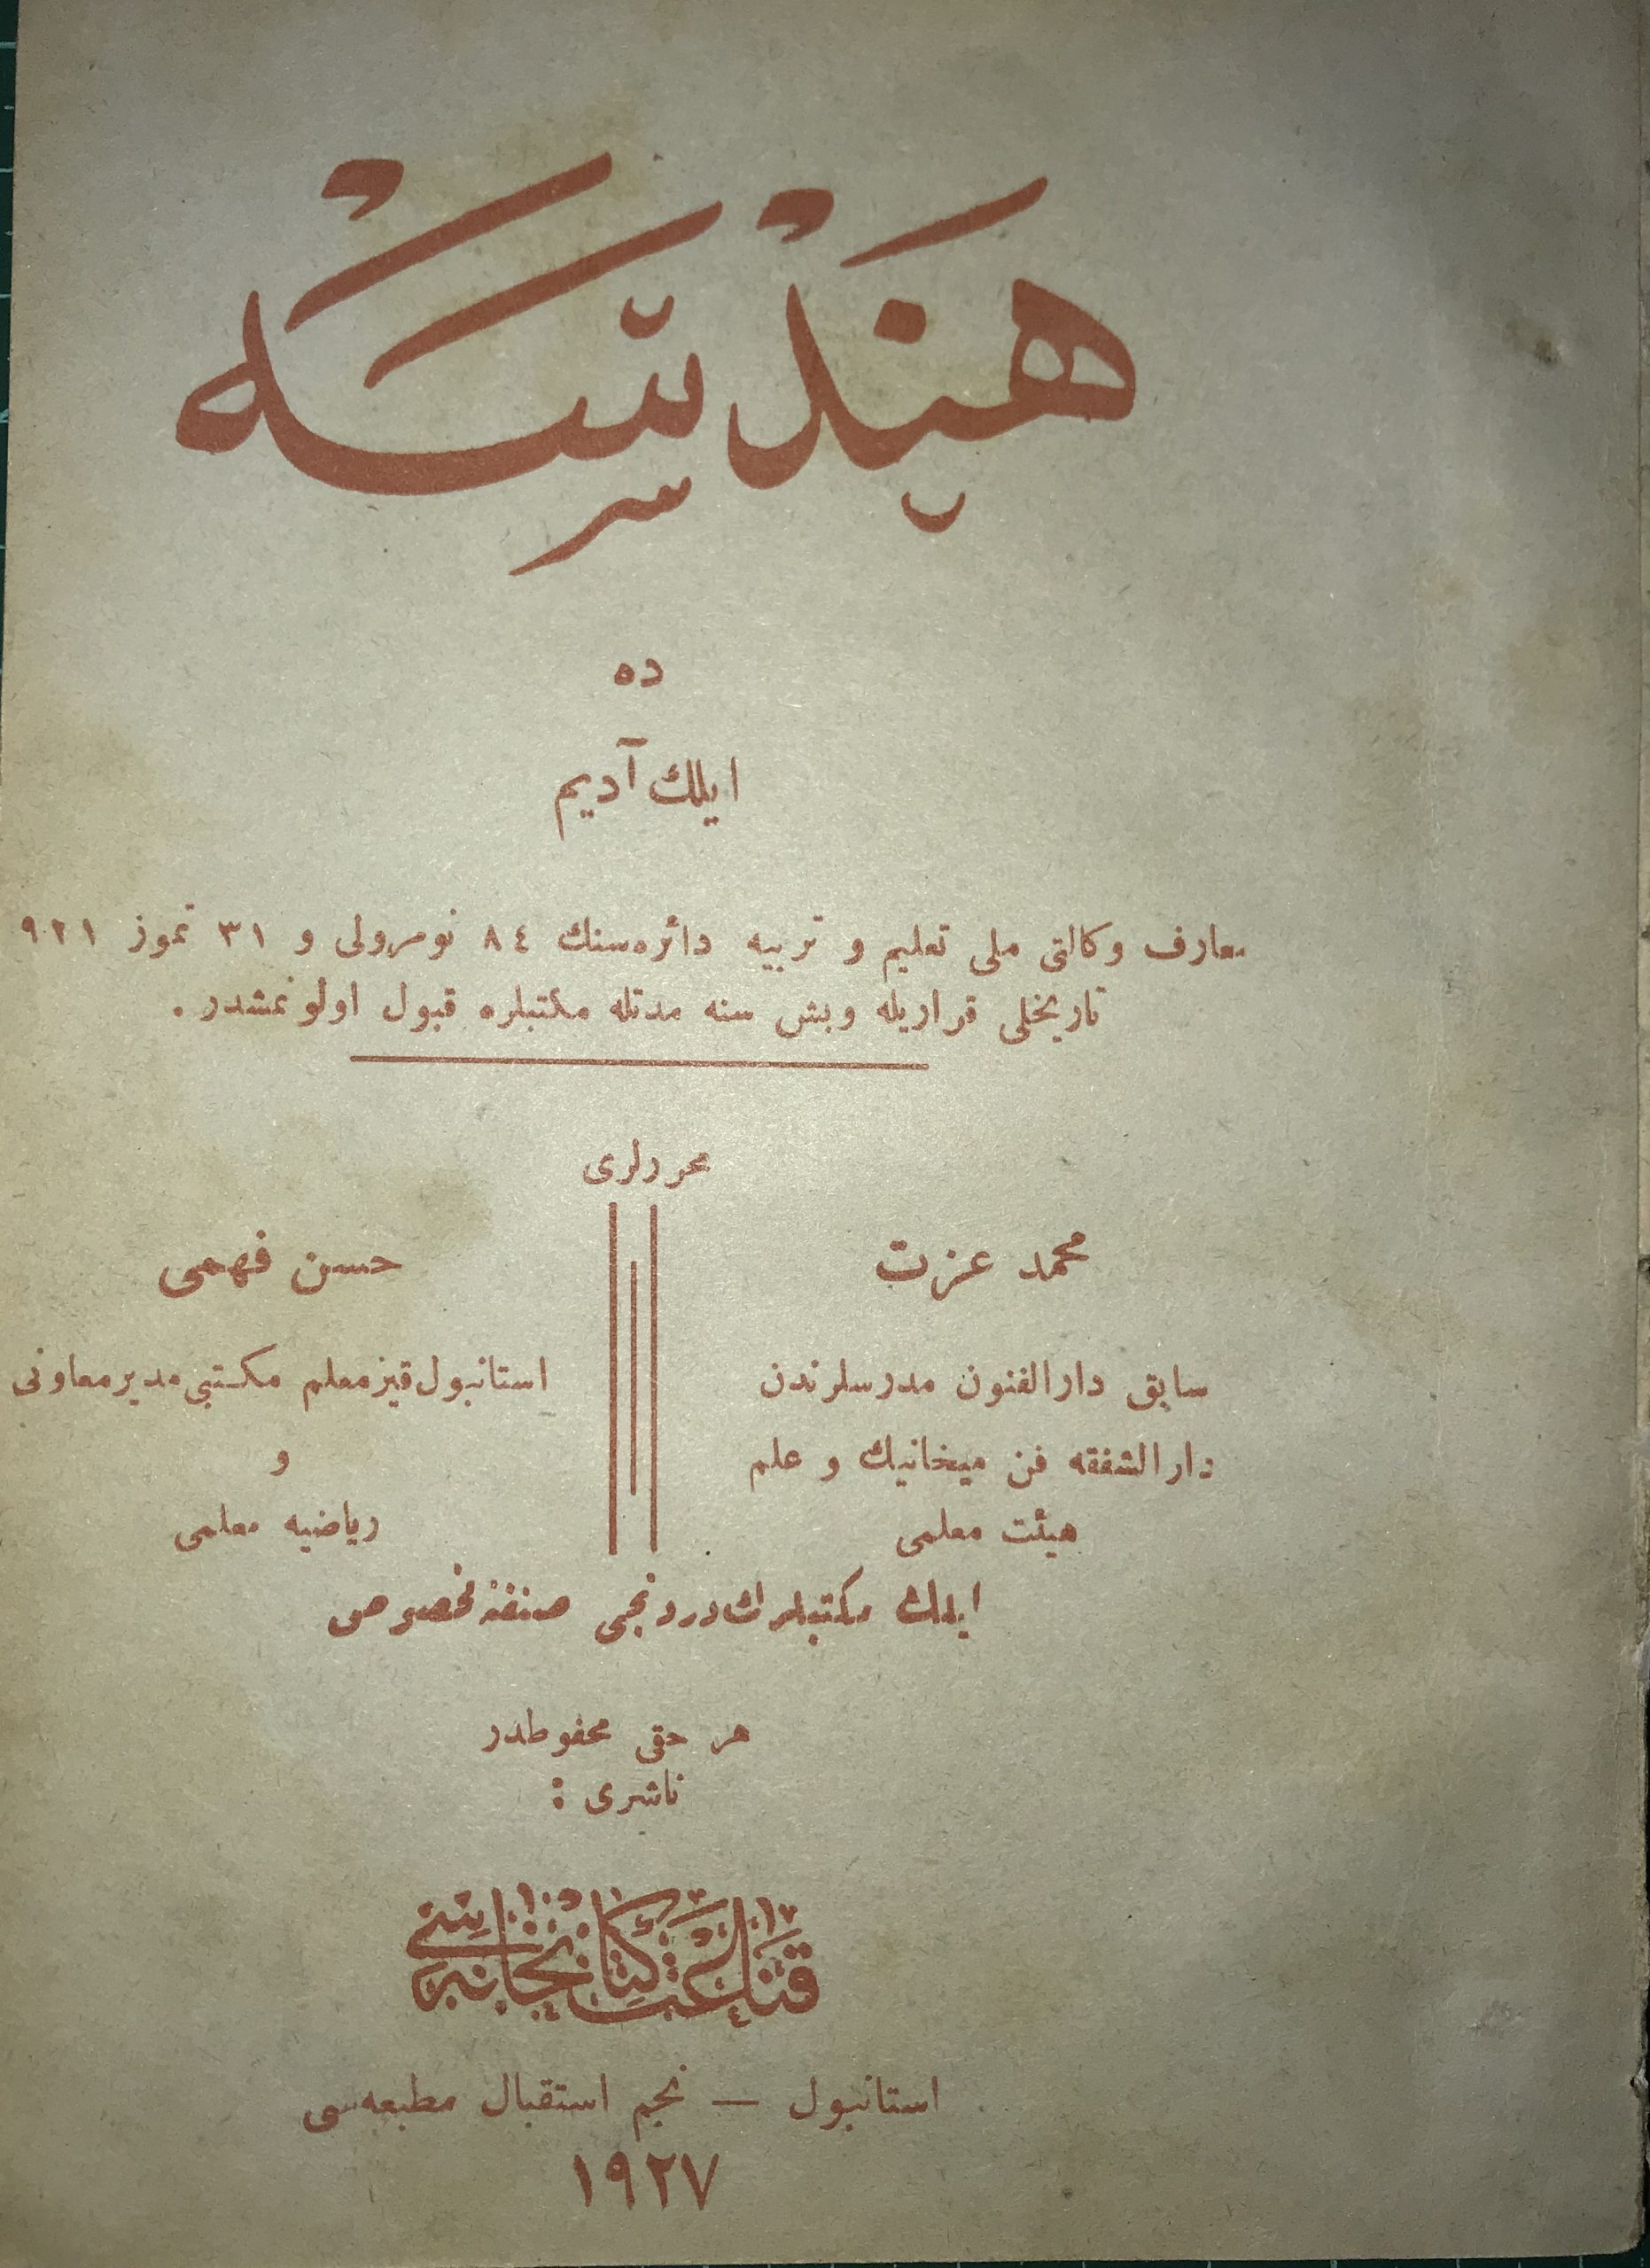 هندسه
ده
ايلك آديم
معارف وكالتى ملى تعليم و تربيه دائره‌سنك ٨٤ نومرولى و ٣١ تموز ٩٢١
تاريخلى قراريله وبش سنه مدتله مكتبلره قبول اولونمشدر.
محررلرى
محمد عزت
سابق دارالفنون مدرسلرندن
دارالشفقه فن ميخانيك و علم
هيئت معلمى
حسن فهمى
استانبول قيز معلم مكتبى مدير معاونى
و
رياضيه معلمى
ايلك مكتبلرك دردنجى صنفنه مخصوص
هر حقى محفوظدر
ناشرى :
قناعت كتابخانه‌سى
استانبول — نجم استقبال مطبعه‌سى
١٩٢٧